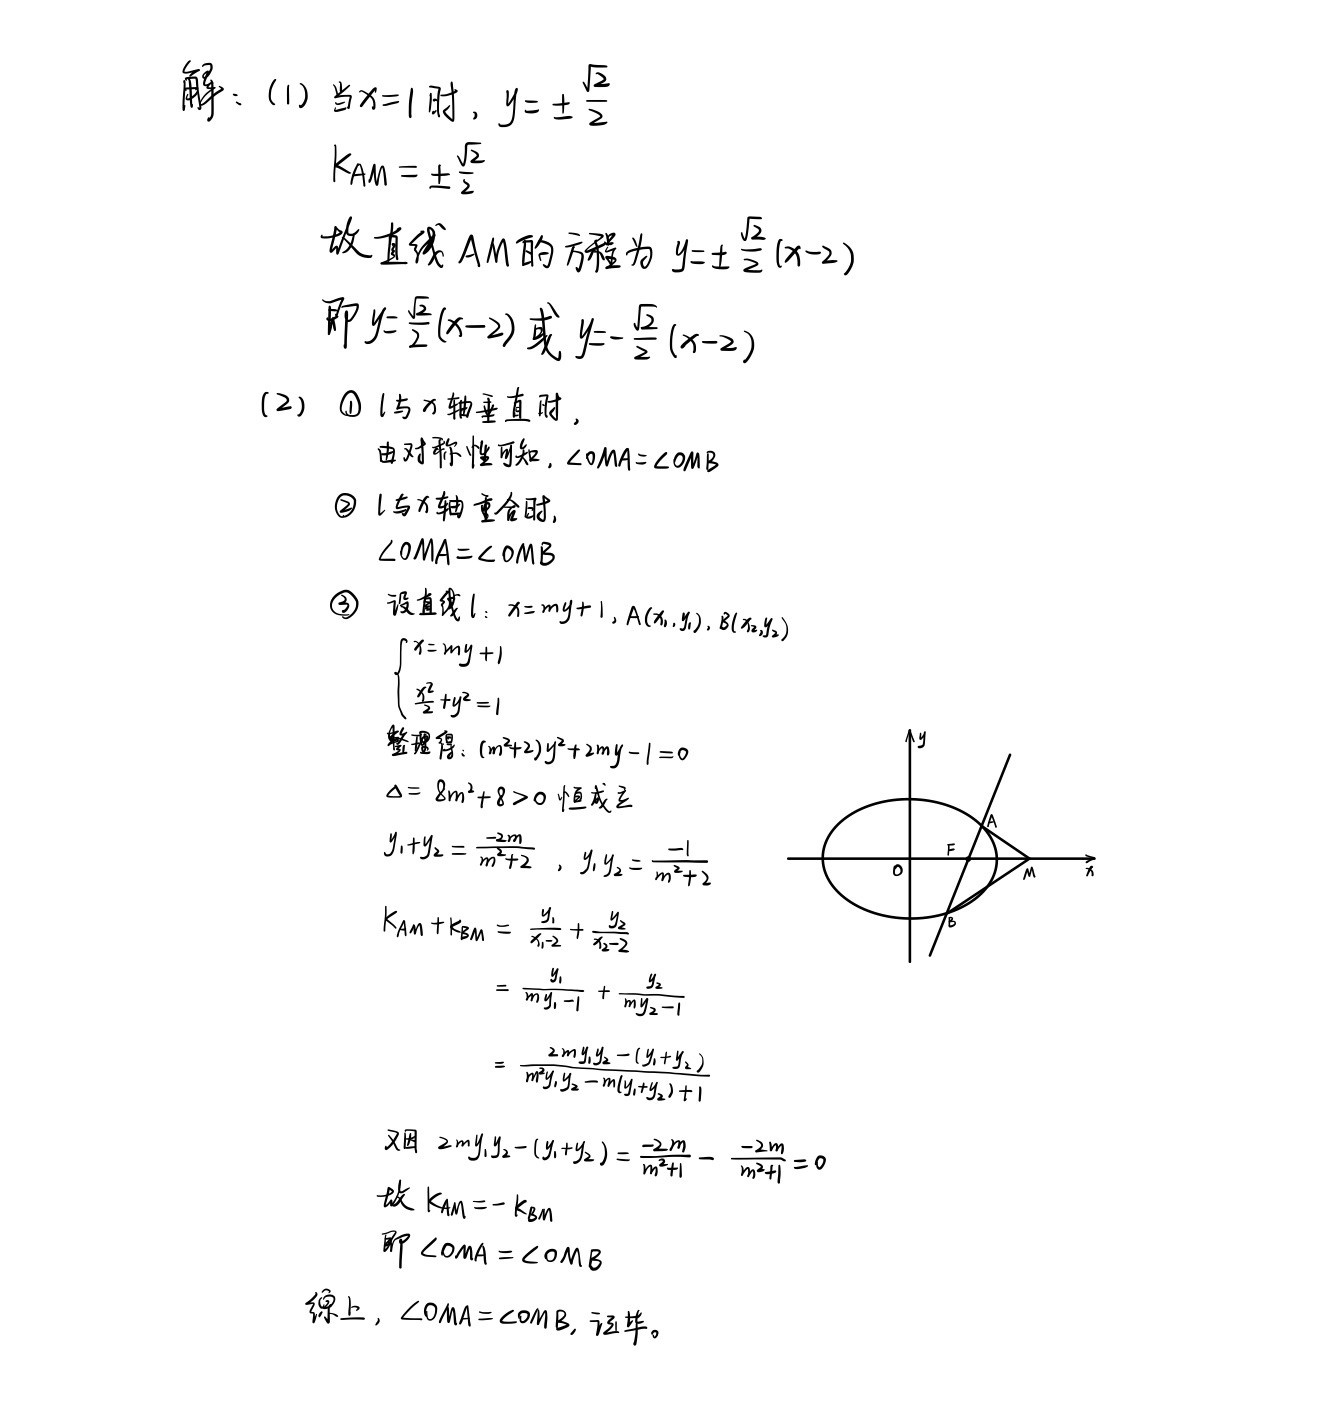 解：(1) 当x=1时，y=±√2/2
K_AM=±√2/2
故直线AM的方程为y=±√2/2(x-2)
即y=√2/2(x-2)或y=-√2/2(x-2)
(2) ① l与x轴垂直时，
由对称性可知，∠OMA=∠OMB
② l与x轴重合时，
∠OMA=∠OMB
③ 设直线l：x=my+1，A(x₁,y₁)，B(x₂,y₂)
{x=my+1
x²/2+y²=1
整理得：(m²+2)y²+2my-1=0
Δ=8m²+8>0恒成立
y₁+y₂=-2m/(m²+2)，y₁y₂=-1/(m²+2)
K_AM+K_BM=y₁/(x₁-2)+y₂/(x₂-2)
=y₁/(my₁-1)+y₂/(my₂-1)
=(2my₁y₂-(y₁+y₂))/(m²y₁y₂-m(y₁+y₂)+1)
又因2my₁y₂-(y₁+y₂)=-2m/(m²+1)-(-2m)/(m²+1)=0
故K_AM=-K_BM
即∠OMA=∠OMB
综上，∠OMA=∠OMB，证毕。
y
A
F
O
M
x
B